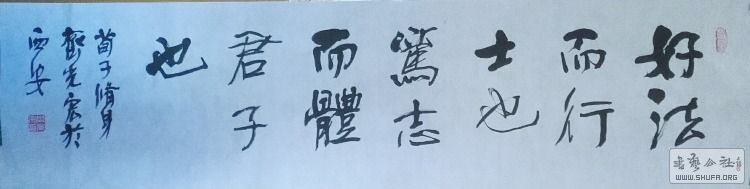 好法
而行
士也
篤志
而體
君子
也
荀子脩身
於
西安
书艺公社
WWW.SHUFA.ORG